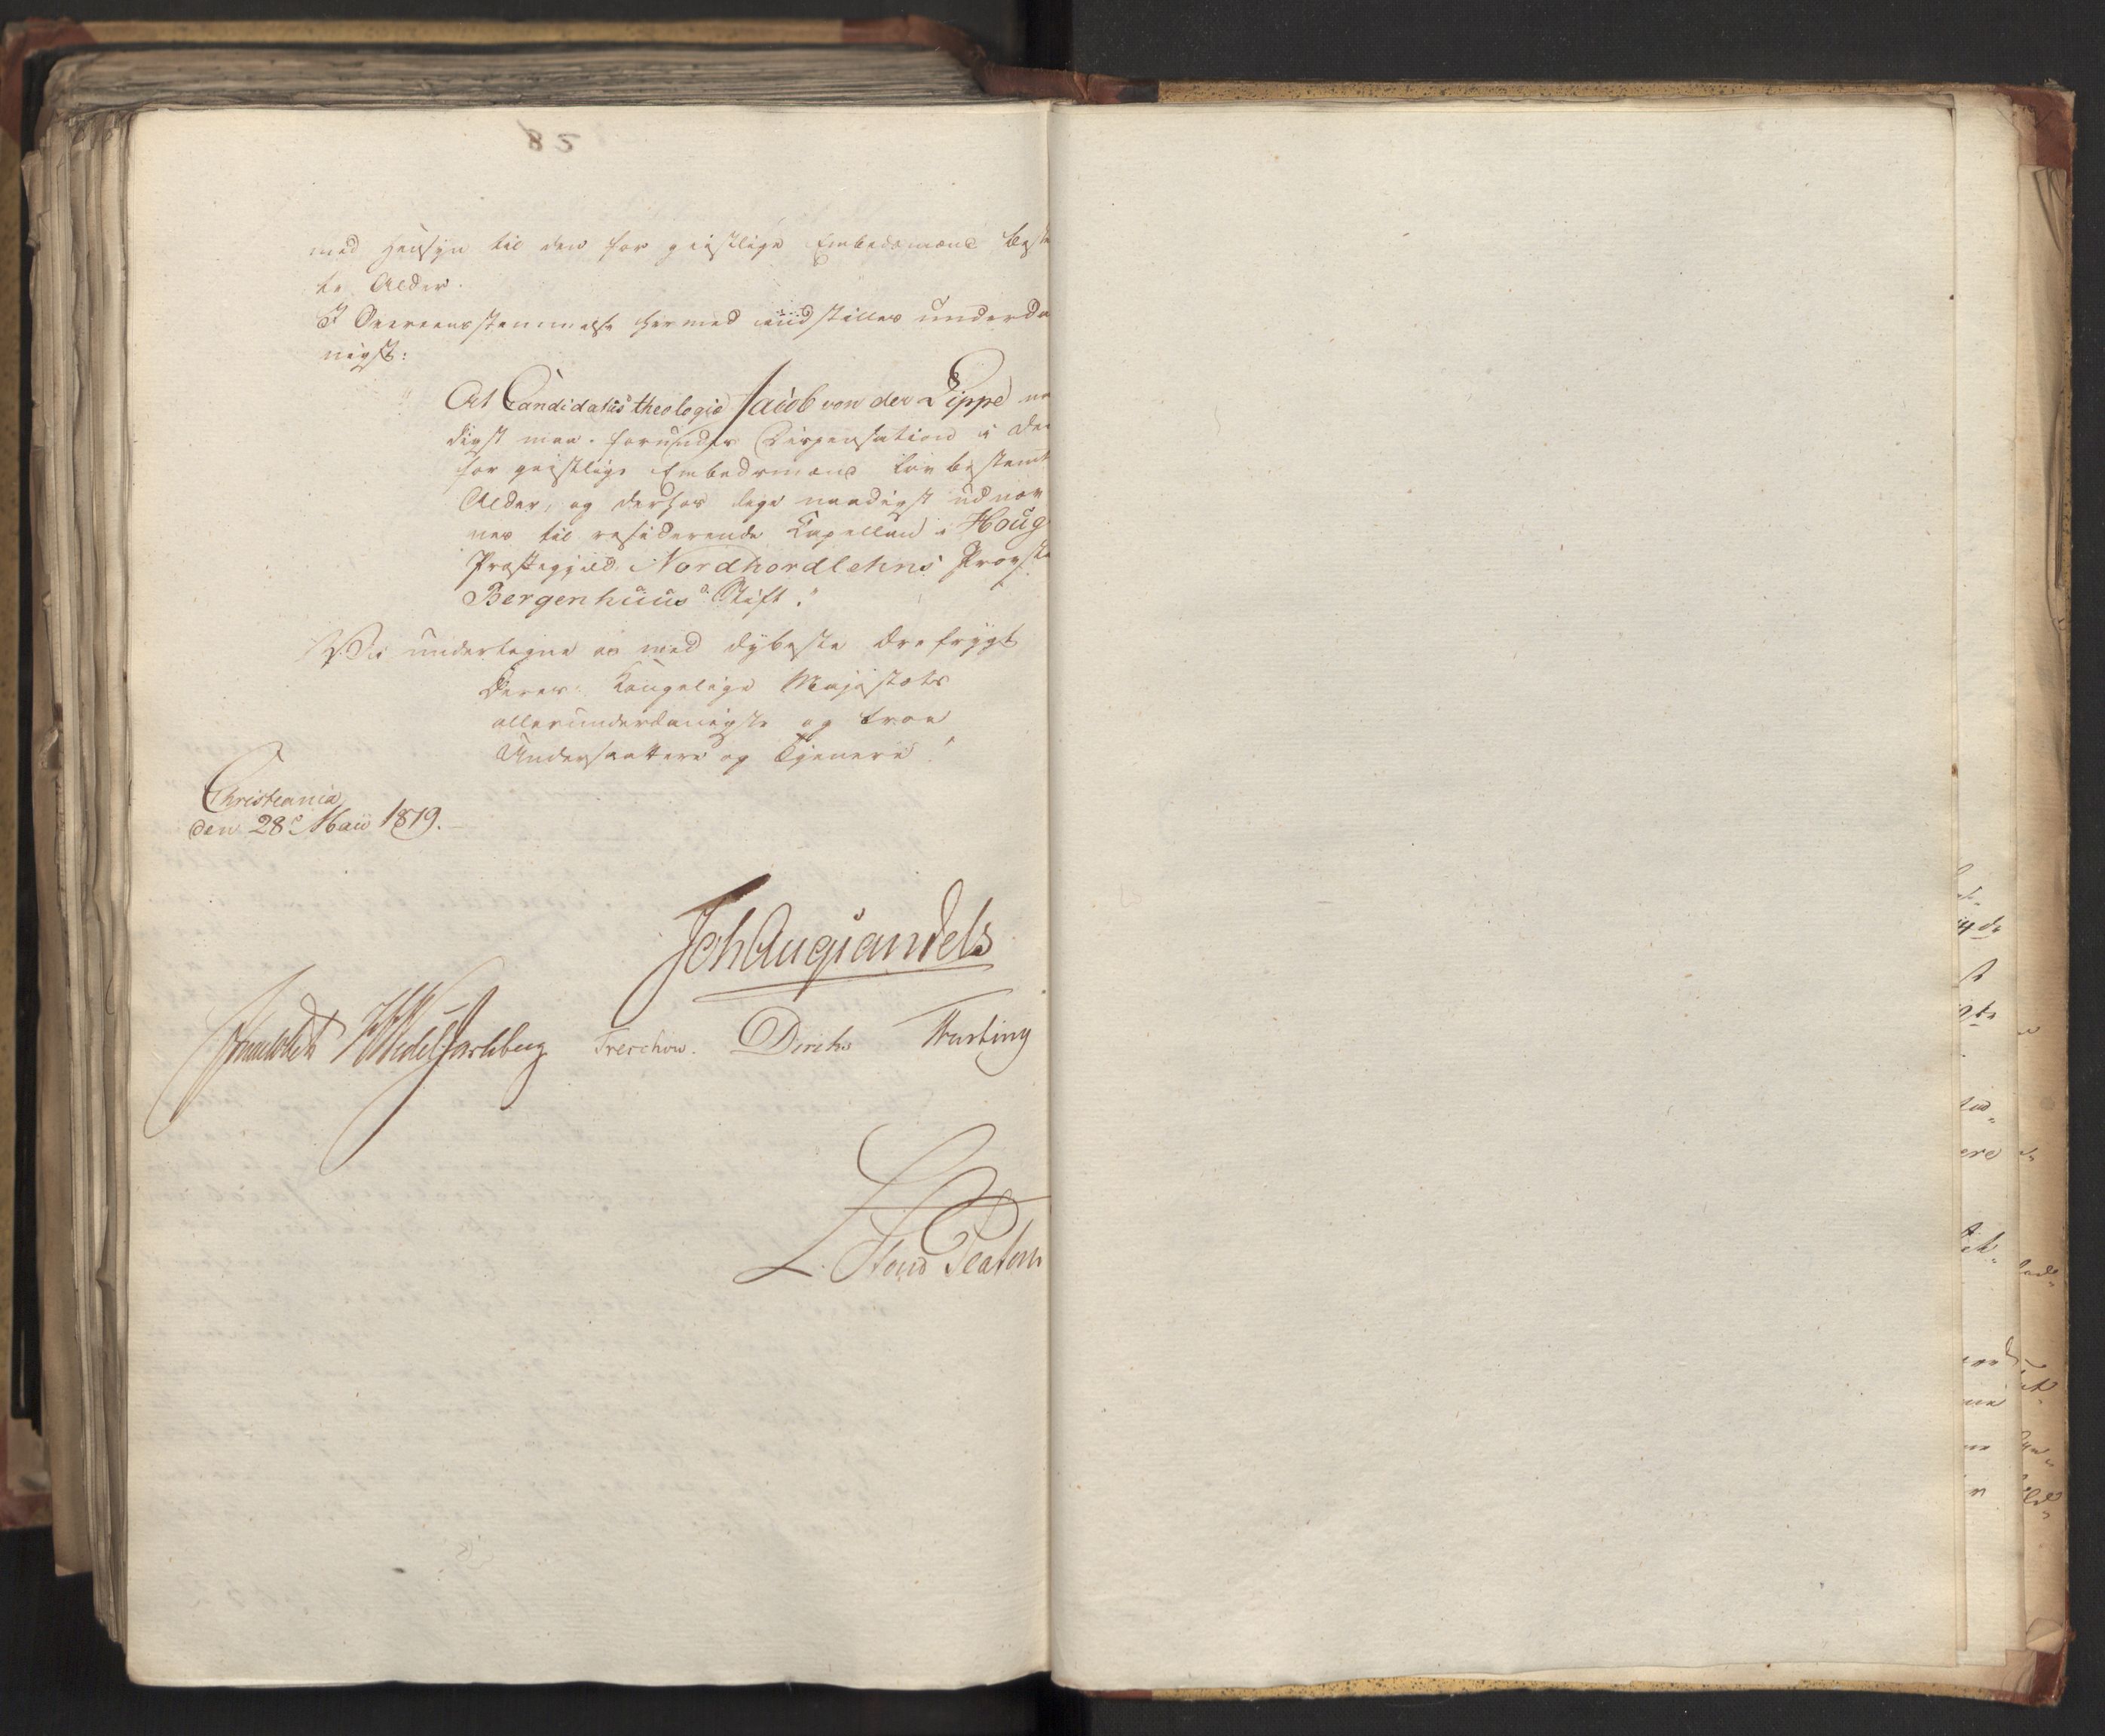 85
med Hensyn til den for geistlige Embedsmænd bestem
te Alder.
I Overeensstemmelse hermed indstilles underda
nigst:
"At Candidatus theologiæ Jacob von der Lippe naa
digst maa forundes Dispensation i den
for geistlige Embedsmænd lovbestemte
Alder, og derhos lige naadigst udnæv
nes til residerende Capellan i Houg
Præstegjeld, Nordhordlehns Provstie
Bergenhuus Stift."
Vi undertegne os med dybeste Ærefrygt
Deres Kongelige Majestæts
allerunderdanigste og troe
Undersaatter og Tjenere
Christiania
den 28e Maii 1819.
Joh Aug Sandels
HWedelJarlsberg Treschow. Diriks
L. Stoud Platou